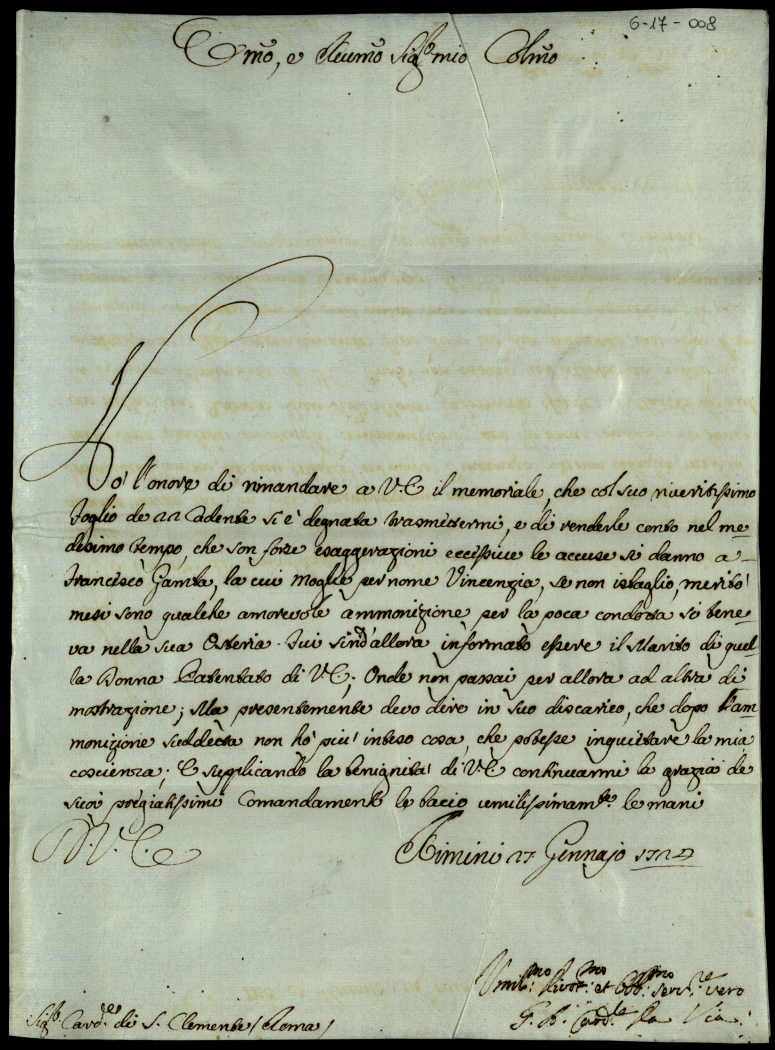 6-17-008
Emo, e Reumo Sigr. mio Colmo
Hò l'onore di rimandare a V.E. il memoriale, che col suo riueritissimo
foglio de 22 Cadente si è degnata trasmettermi, e di renderle conto nel me-
desimo tempo, che son forse esaggerazioni eccessiue le accuse si danno a
Francesco Gamba, la cui Moglie per nome Vincenzia, se non isbaglio, meritò
mesi sono qualche amorevole ammonizione per la poca condotta si tene-
va nella sua Osteria. Fui sin d'allora informato essere il Marito di quel-
la Donna Patentato di V.E.; Onde non passai per allora ad altra di
mostrazione; Ma presentemente devo dire in suo discarico, che dopo l'am-
monizione suddetta non hò più inteso cosa, che potesse inquietare la mia
coscienza; E supplicando la benignità di V.E. continuarmi la grazia de
suoi pregiatissimi Comandamenti le bacio umilissimamte. le mani
D. V. E.
Rimini 27 Gennajo 1724
Umilmo. Divotmo. et Obbmo. servre. vero
Sigr. Cardle. di S. Clemente / Roma /
G. A. Cardle. Da Via